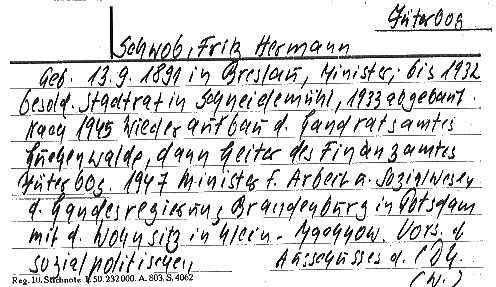 Jüterbog
Schwob, Fritz Hermann
Geb. 13.9.1891 in Breslau, Minister; bis 1932
besold. Stadtrat in Schneidemühl, 1933 abgebaut.
Nach 1945 Wiederaufbau d. Landratsamtes
Luckenwalde, dann Leiter des Finanzamtes
Jüterbog. 1947 Minister f. Arbeit u. Sozialwesen
d. Landesregierung Brandenburg in Potsdam
mit d. Wohnsitz in Klein-Machnow. Vors. d.
sozialpolitischen Ausschusses d. CDU.
(W.)
Reg. 10. Stichnote V. 50. 232000. A. 803. S. 4062